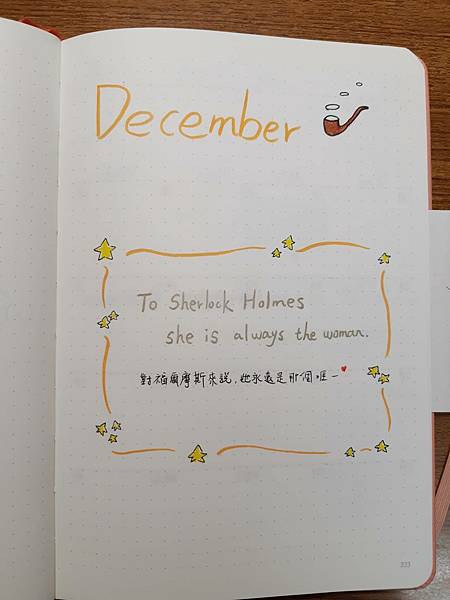 December
To Sherlock Holmes
she is always the woman.
對福爾摩斯來說,她永遠是那個唯一
233